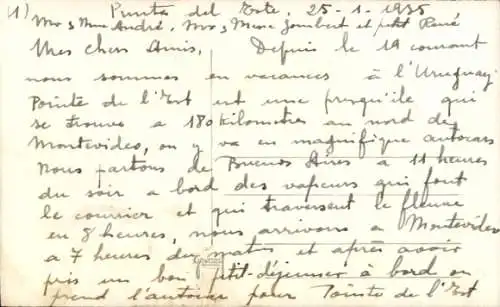 1) Punta del Este, 25-1-1935
Mr & Mme André, Mr & Mme Jombert et petit René
Mes chers Amis, Depuis le 19 courant
nous sommes en vacances à l'Uruguay
Pointe de l'Est est une presqu'île qui
se trouve a 180 kilometres au nord de
Montevideo, on y va en magnifique autocars
Nous partons de Buenos Aires a 11 heures
du soir a bord des vapeurs qui font
le courrier et qui traversent le fleuve
en 8 heures, nous arrivons a Montevideo
a 7 heures du matin et après avoir
pris un bon petit-déjeuner à bord on
prend l'autocar pour Pointe de l'Est